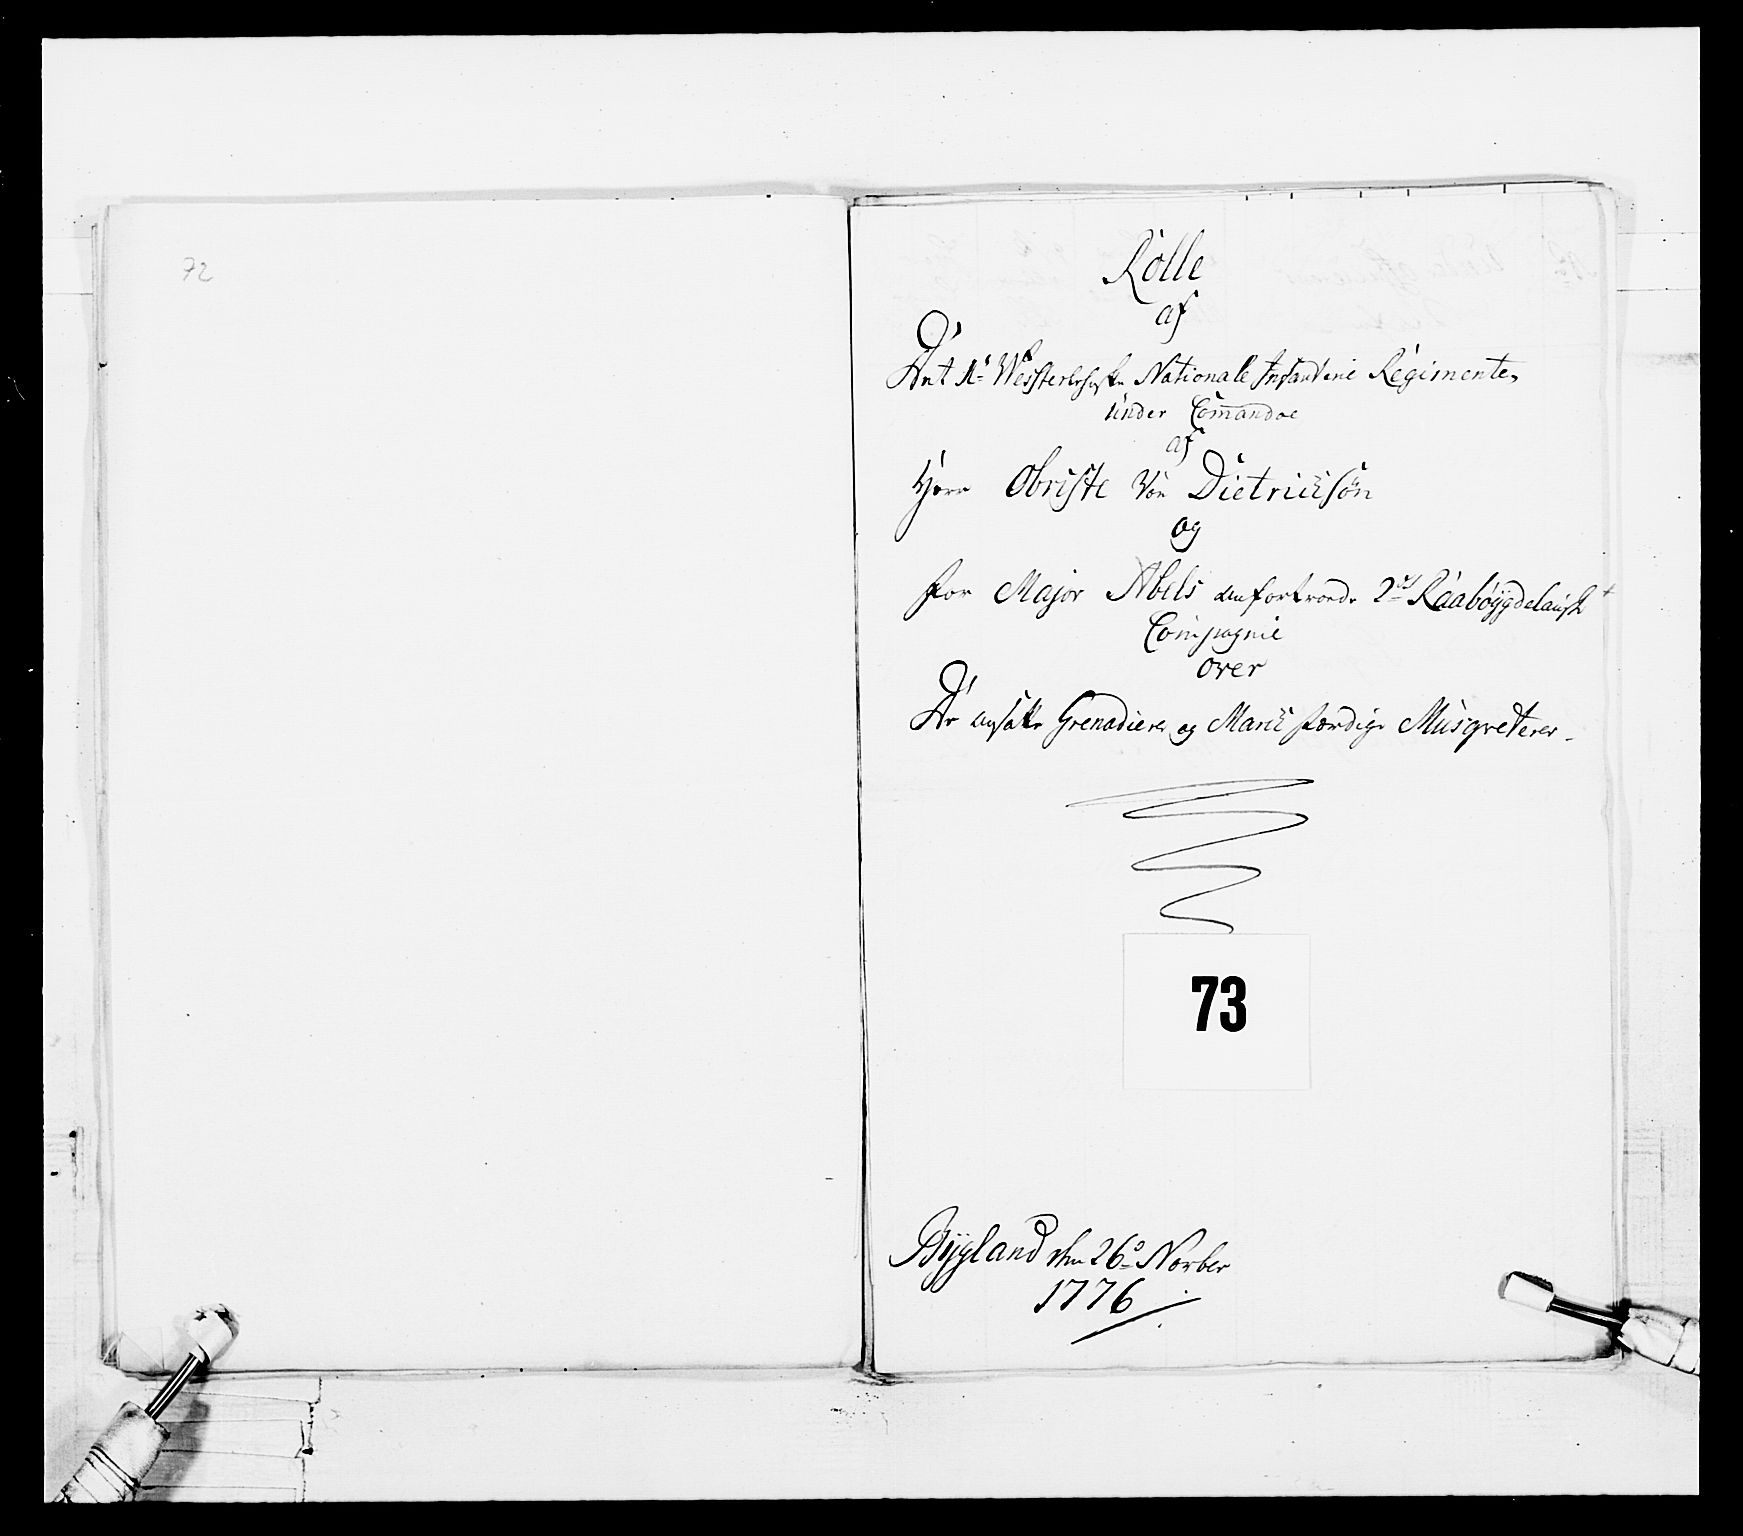 72
Rolle
af
Det 1te Westerlehnske Nationale Infanterie Regimentes
under Comandoe
af
Herr Obriste Von Dietrichsön
og
for Major Abels anfortroede 2det Raabøygdelauske
Compagnie
over
De ansatte Grenaderer og March færdige Musqveterer.
73
Bÿgland den 26de Novber
1776